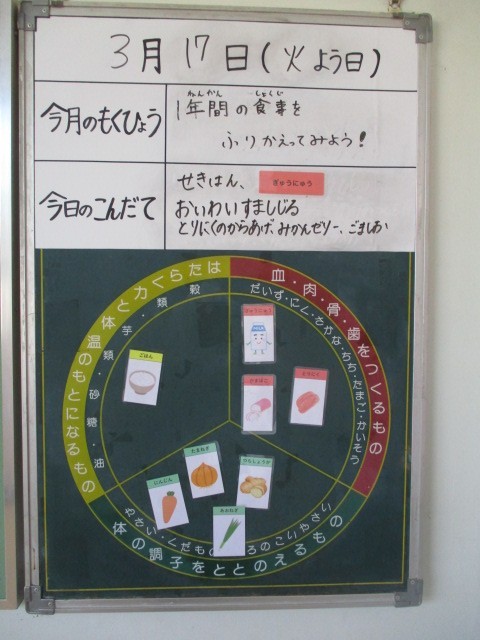 3月17日(火よう日)
今月のもくひょう
1年間の食事を
ねんかん しょくじ
ふりかえってみよう!
今日のこんだて
せきはん、 ぎゅうにゅう
おいわいすましじる
とりにくのからあげ、みかんゼリー、ごましお
血・肉・骨・歯をつくるもの
だいず・にく・さかな・ちち・たまご・かいそう
体の調子をととのえるもの
やさい・くだもの
きのこ
やさい
穀類・芋類・砂糖・油
ぎゅうにゅう
ごはん
かまぼこ
とりにく
たまねぎ
にんじん